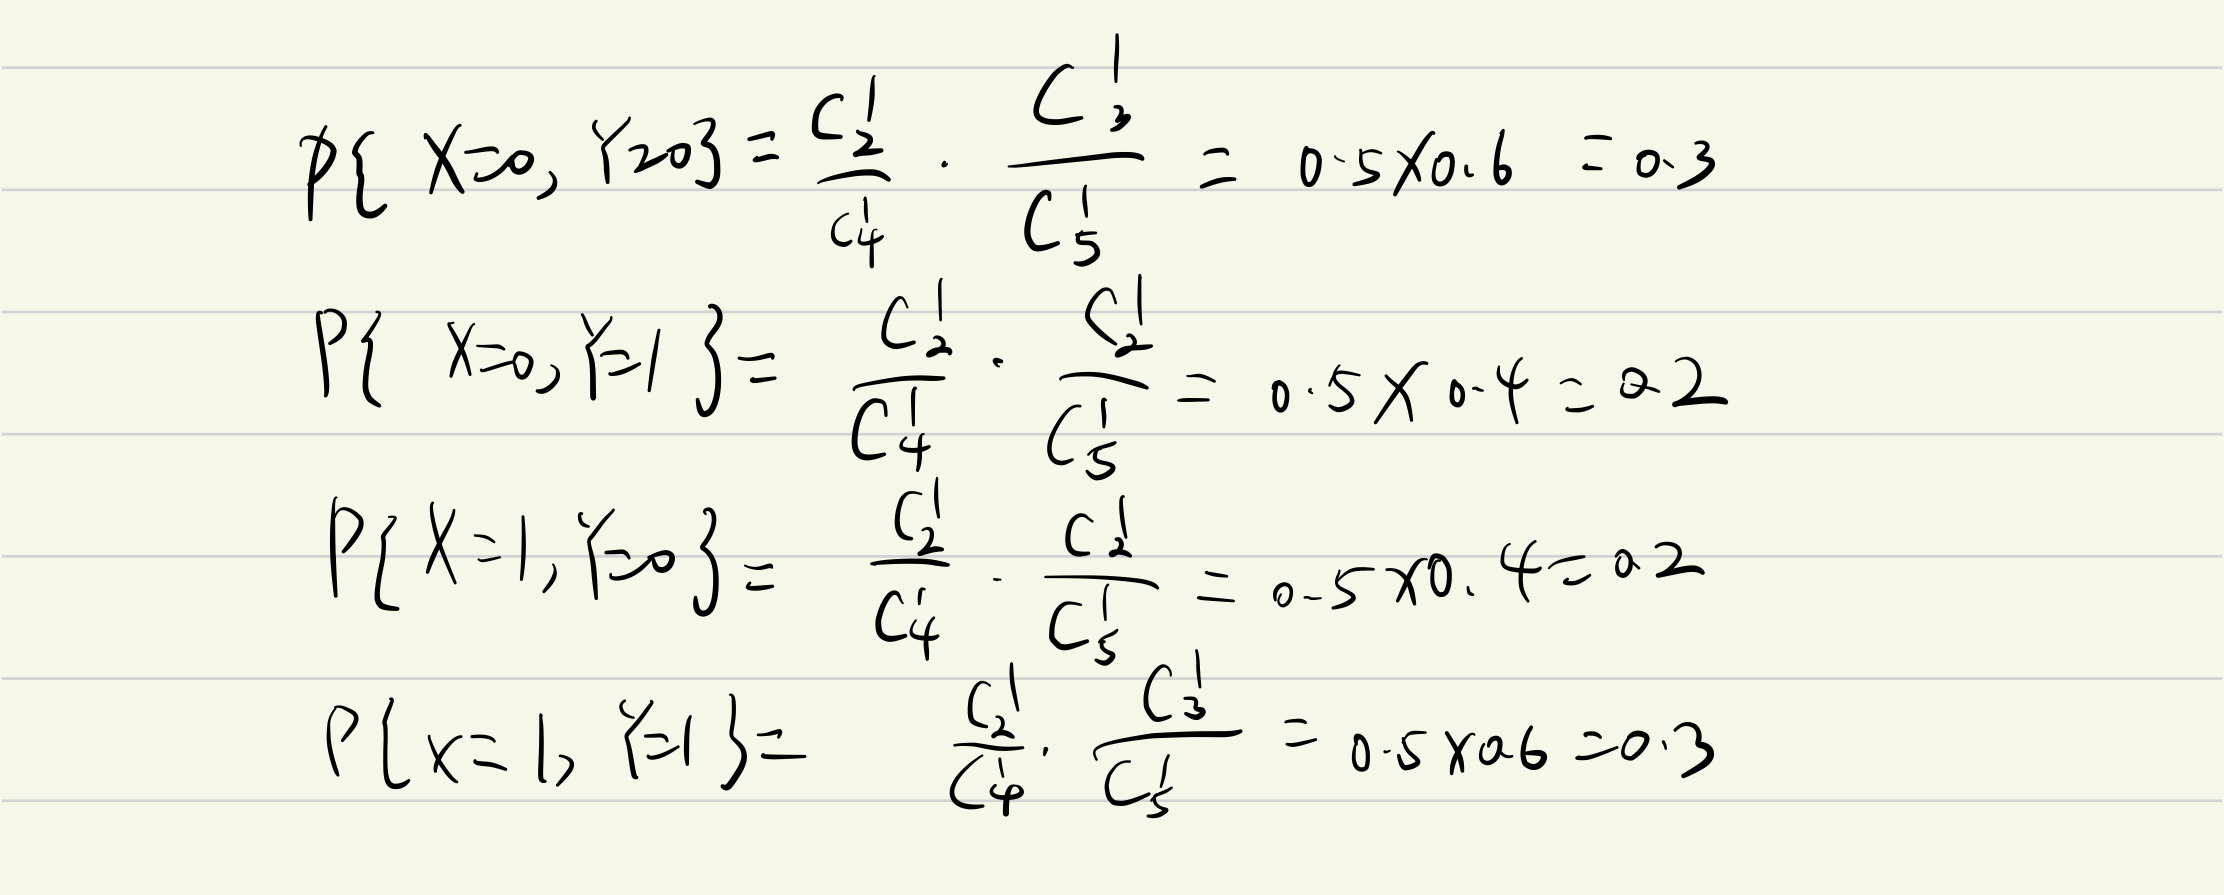 P{ X=0, Y=0} = C_2^1/C_4^1 · C_3^1/C_5^1 = 0.5×0.6 = 0.3
P{ X=0, Y=1 } = C_2^1/C_4^1 · C_2^1/C_5^1 = 0.5×0.4 = 0.2
P{ X=1, Y=0 } = C_2^1/C_4^1 · C_2^1/C_5^1 = 0.5×0.4 = 0.2
P{ X=1, Y=1 } = C_2^1/C_4^1 · C_3^1/C_5^1 = 0.5×0.6 = 0.3